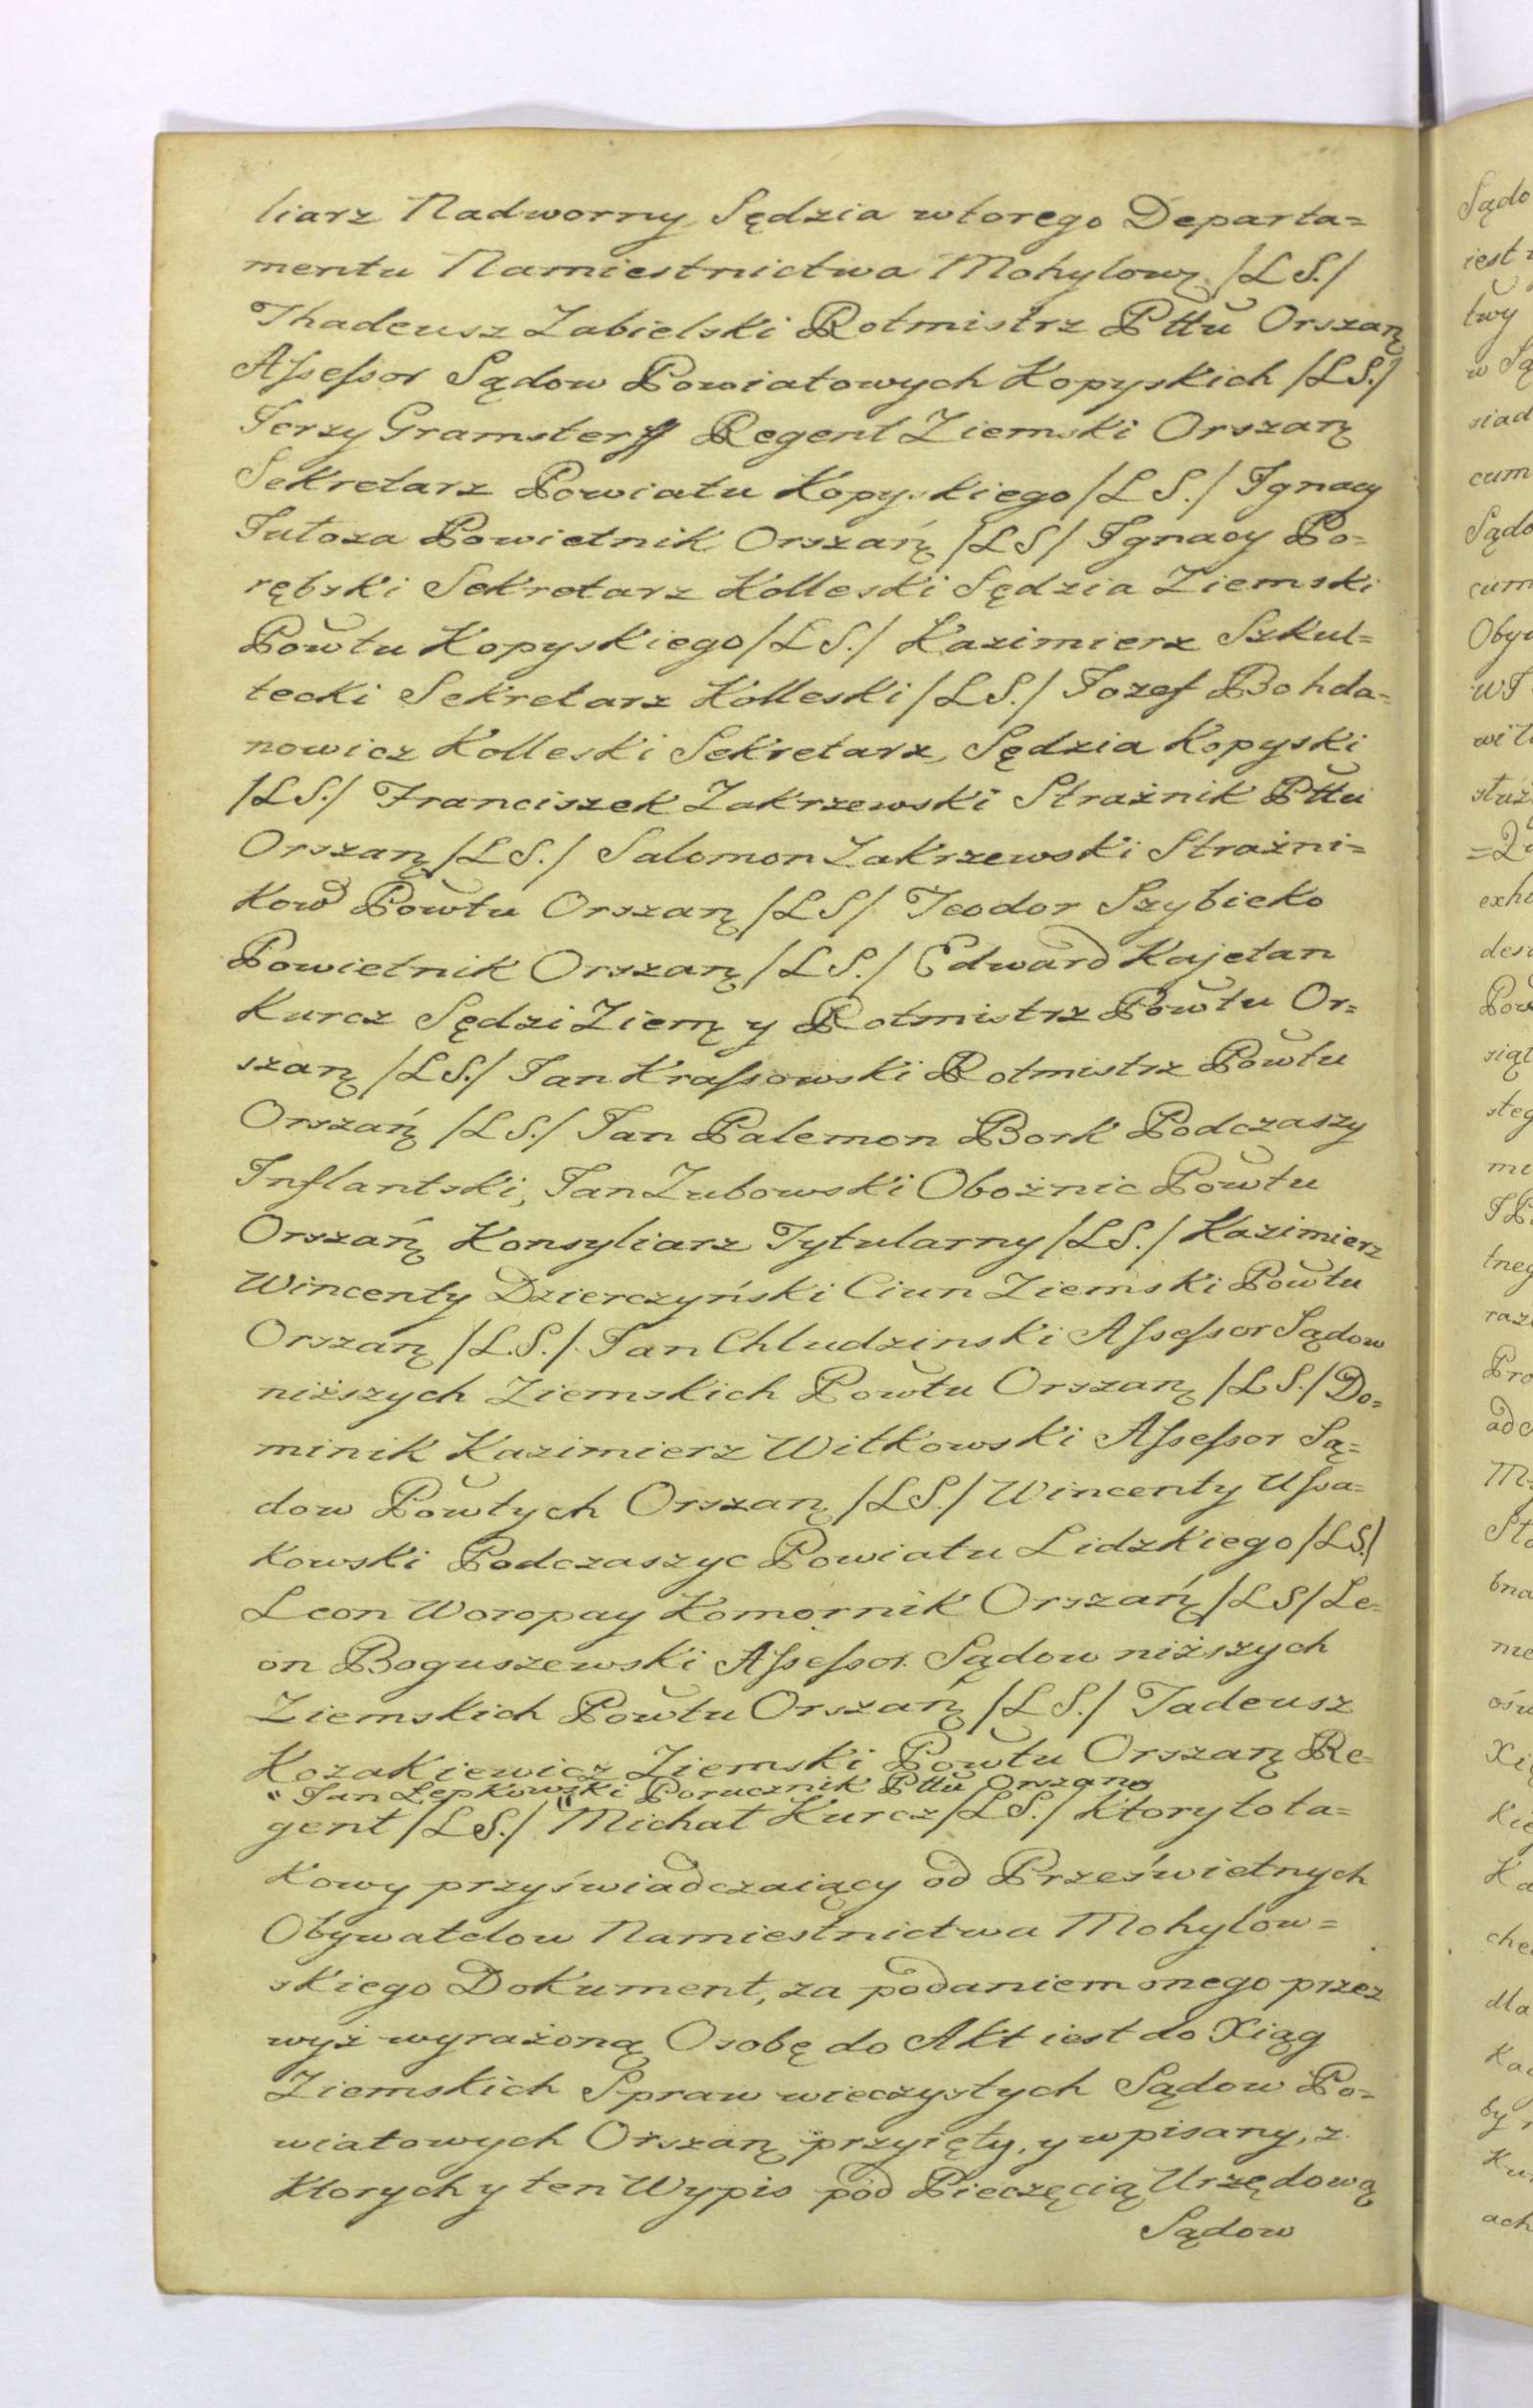 liarz Nadworny, Sędzia wtorego Departa=
mentu Namiestnictwa Mohylowꝫ /LS./
Thadeusz Zabielski Rotmistrz Pttu Orszanꝫ
Aſseſsor Sądow Powiatowych Kopyskich /LS./
Jerzy Gramsterff Regent Ziemski Orszanꝫ
Sekretarz Powiatu Kopyskiego /LS./ Ignacy
Powietnik Orszanꝫ /LS/ Ignacy Po=
rębski Sekretarz Kolleski Sędzia Ziemski
Powtu Kopyskiego /LS./ Kazimierz Szkul=
tecki Sekretarz Kolleski /LS./ Jozef Bohda=
nowicz Kolleski Sekretarz, Sędzia Kopyski
/LS./ Franciszek Zakrzewski Strażnik Pttu
Orszanꝫ /LS./ Salomon Zakrzewski Strażni=
kow Powtu Orszanꝫ /LS/ Teodor Szybieko
Powietnik Orszanꝫ /LS./ Edward Kajetan
Kurcz Sędzi Ziemꝫ y Rotmistrz Powtu Or=
szanꝫ /LS./ Jan Kraſsowski Rotmistrz Powtu
Orszańꝫ /LS./ Jan Palemon Bork Podczaszy
Inflantski, Jan Zubowski Obożnic Powtu
Orszańꝫ Konsyliarz Tytularny /LS./ Kazimierz
Wincenty Dzierczyński Ciun Ziemski Powtu
Orszanꝫ /L.S./ Jan Chludzinski Aſseſsor Sądow
niższych Ziemskich Powtu Orszanꝫ /LS./ Do=
minik Kazimierz Witkowski Aſseſsor Są=
dow Powtych Orszanꝫ /LS./ Wincenty Uſsa=
kowski Podczaszyc Powiatu Lidzkiego /LS./
Leon Woropay Komornik Orszańꝫ /LS/ Le=
on Boguszewski Aſseſsor Sądow niższych
Ziemskich Powtu Orszańꝫ /LS./ Tadeusz
Kozakiewicz Ziemski Powtu Orszanꝫ Re=
" Jan Łepkowski Porucznik Pttu Orszanꝫ
gent /LS./ " Michał Kurcz /LS./ Ktory to ta=
kowy przyświadczaiący od Prześwietnych
Obywatelow Namiestnictwa Mohylow=
skiego Dokument, za podaniem onego przez
wyż wyrażoną Osobę do Akt iest do Xiąg
Ziemskich Spraw wieczystych Sądow Po=
wiatowych Orszanꝫ przyięty, y wpisany, z
Ktorych y ten Wypis pod Pieczęcią Urzędową
Sądow